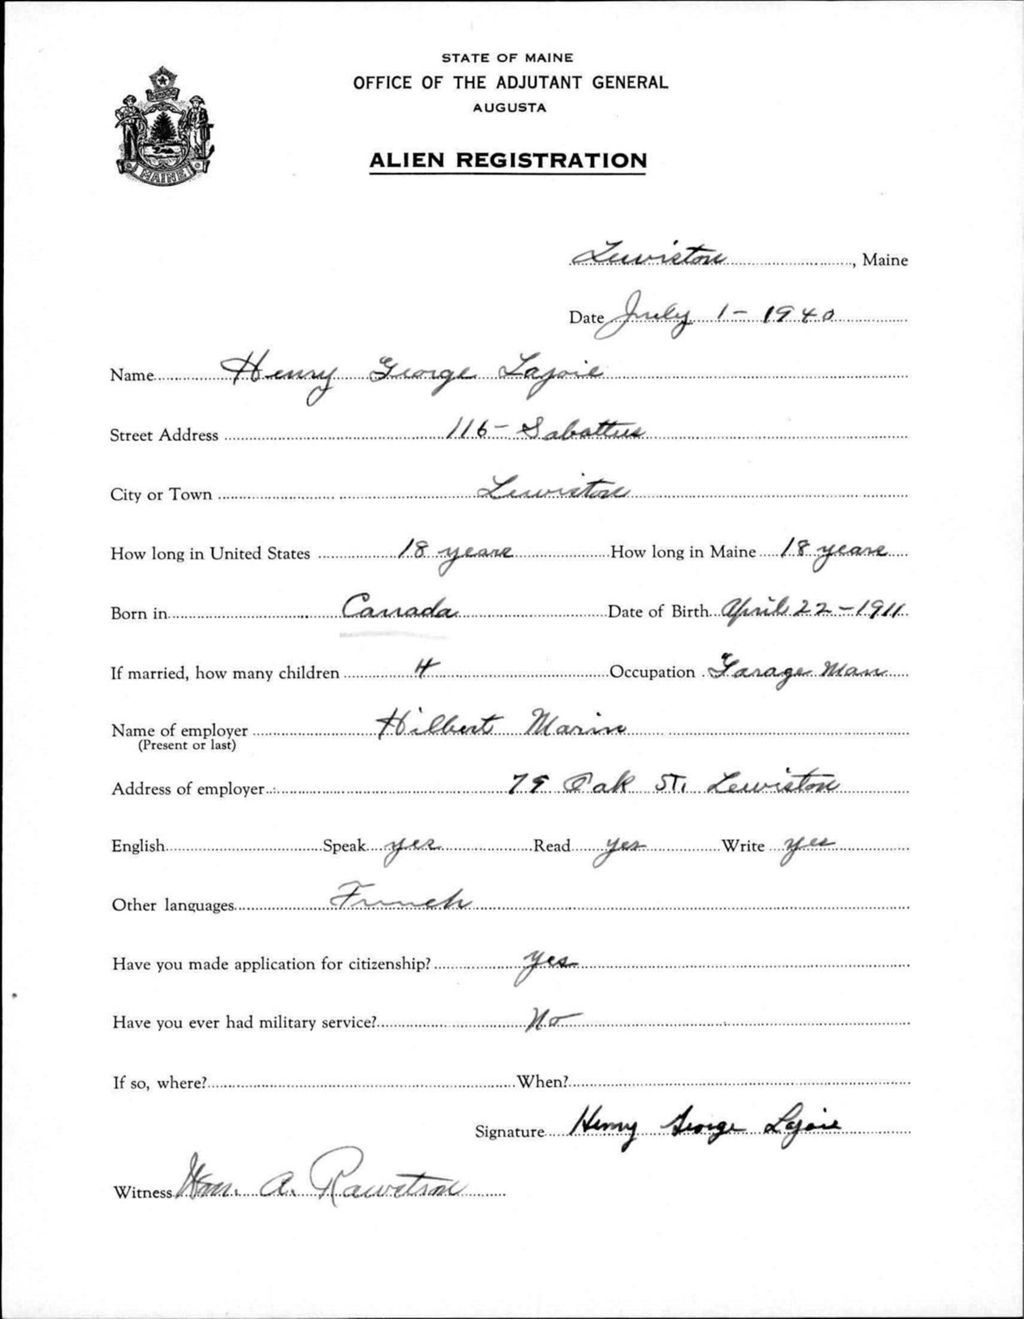 STATE OF MAINE
OFFICE OF THE ADJUTANT GENERAL
AUGUSTA
ALIEN REGISTRATION
MAINE
Lewiston, Maine
Date July 1 - 1940
Name Henry George Lajoie
Street Address 116 - Sabattus
City or Town Lewiston
How long in United States 18 years How long in Maine 18 years
Born in Canada Date of Birth April 22 - 1911
If married, how many children 4 Occupation Garage Man
Name of employer Hilbert Marin
(Present or last)
Address of employer 79 Oak St. Lewiston
English Speak yes Read yes Write yes
Other languages French
Have you made application for citizenship? yes
Have you ever had military service? No
If so, where? When?
Signature Henry George Lajoie
Witness Wm. A.